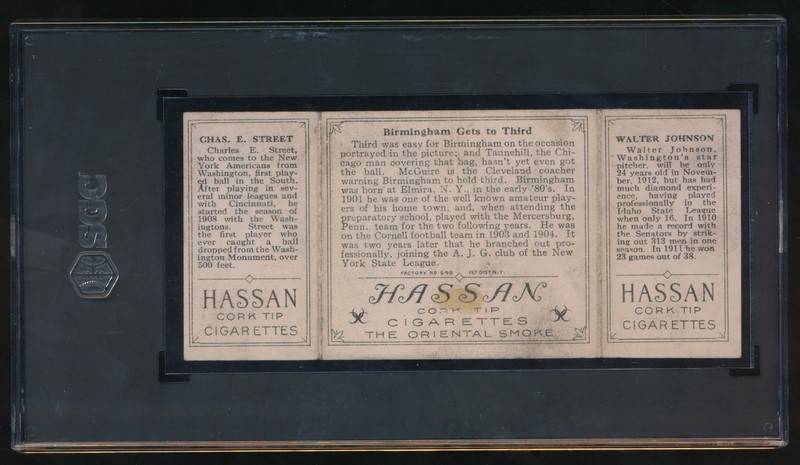 SGC
CHAS. E. STREET
Charles E. Street,
who comes to the New
York Americans from
Washington, first play-
ed ball in the South.
After playing in sev-
eral minor leagues and
with Cincinnati, he
started the season of
1908 with the Wash-
ingtons. Street was
the first player who
ever caught a ball
dropped from the Wash-
ington Monument, over
500 feet.
HASSAN
CORK TIP
CIGARETTES
Birmingham Gets to Third
Third was easy for Birmingham on the occasion
portrayed in the picture; and Tannehill, the Chi-
cago man covering that bag, hasn't yet even got
the ball. McGuire is the Cleveland coacher
warning Birmingham to hold third. Birmingham
was born at Elmira, N. Y., in the early '80's. In
1901 he was one of the well known amateur play-
ers of his home town, and, when attending the
preparatory school, played with the Mercersburg,
Penn., team for the two following years. He was
on the Cornell football team in 1903 and 1904. It
was two years later that he branched out pro-
fessionally, joining the A. J. G. club of the New
York State League.
FACTORY NO 649 1ST DIST. N.Y.
HASSAN
CORK TIP
CIGARETTES
THE ORIENTAL SMOKE
WALTER JOHNSON
Walter Johnson,
Washington's star
pitcher, will be only
24 years old in Novem-
ber, 1912, but has had
much diamond experi-
ence, having played
professionally in the
Idaho State League
when only 16. In 1910
he made a record with
the Senators by strik-
ing out 313 men in one
season. In 1911 he won
23 games out of 38.
HASSAN
CORK TIP
CIGARETTES